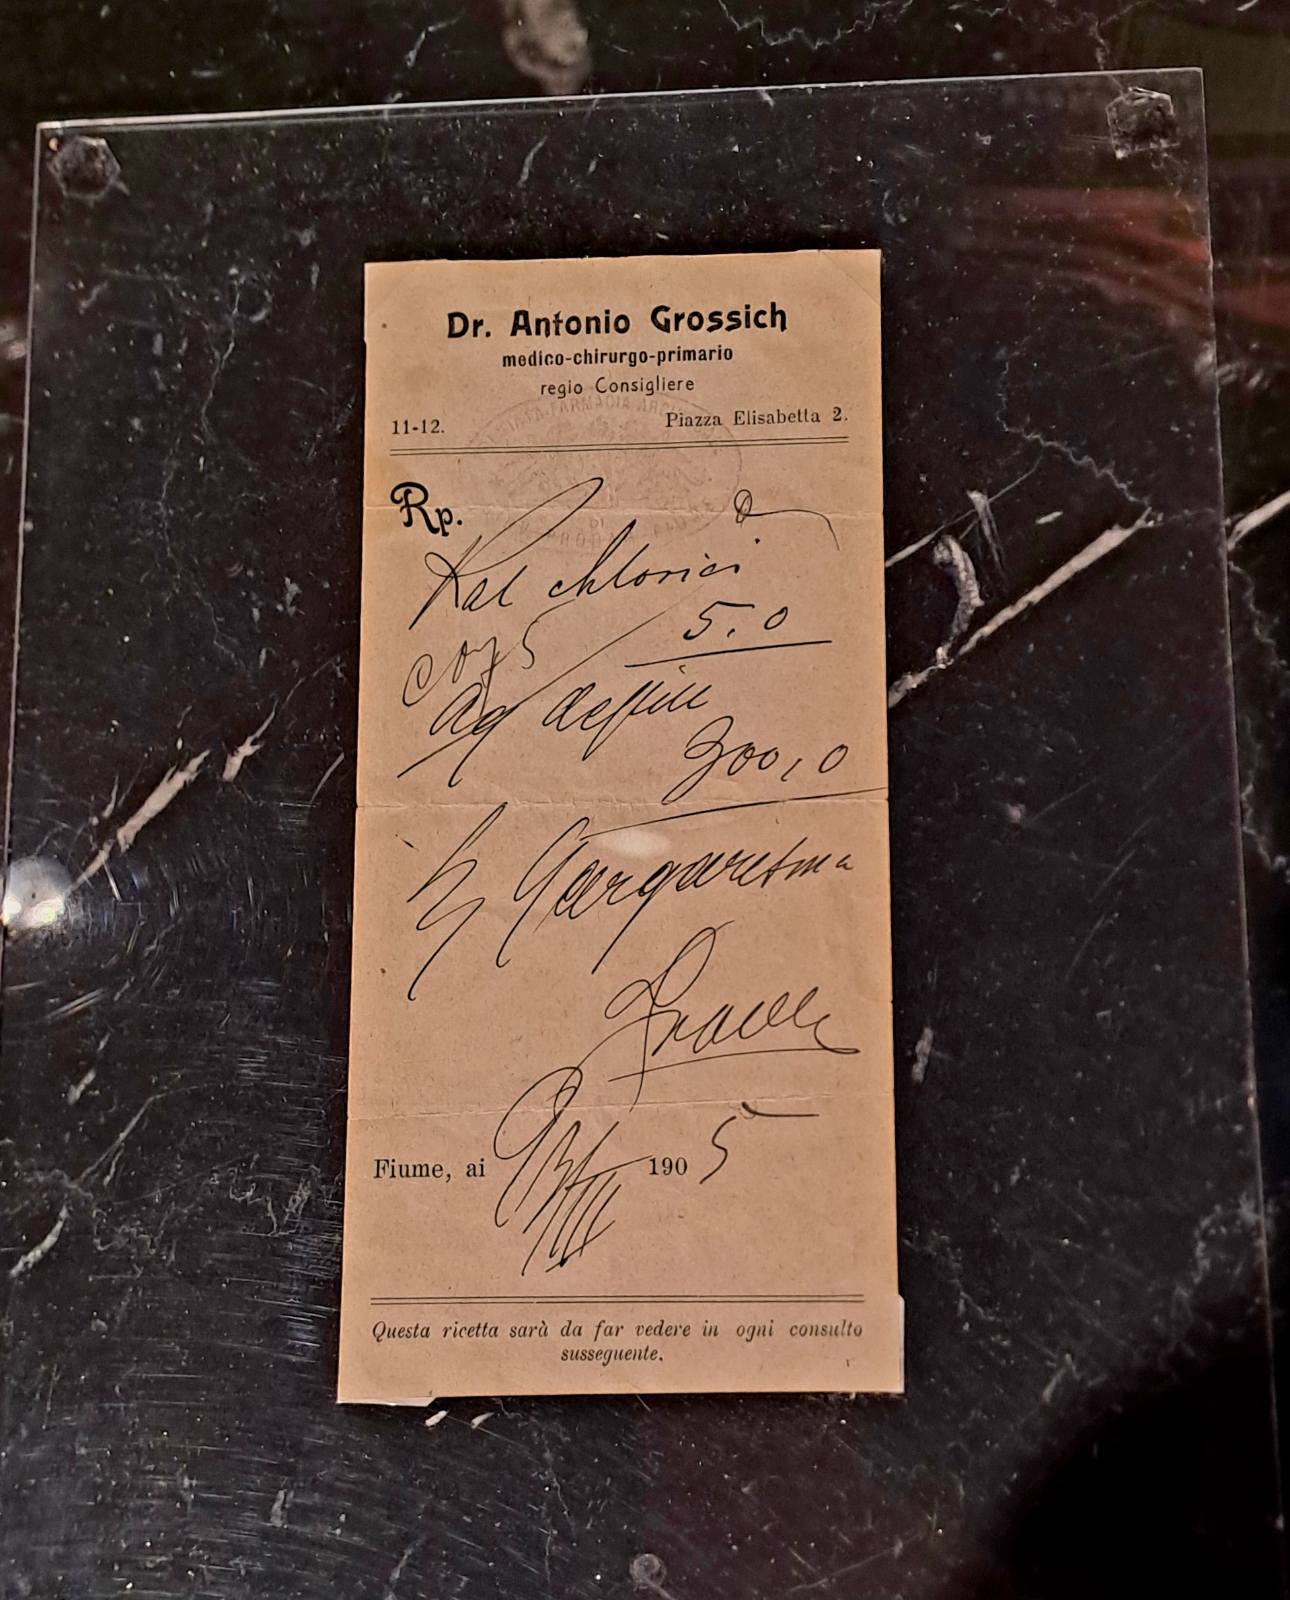 Dr. Antonio Grossich
medico-chirurgo-primario
regio Consigliere
11-12. Piazza Elisabetta 2.
Rp.
Kal chlorici
5.0
Aq destill
300,0
Gargarisma
Fiume, ai 190 5
Questa ricetta sarà da far vedere in ogni consulto
susseguente.